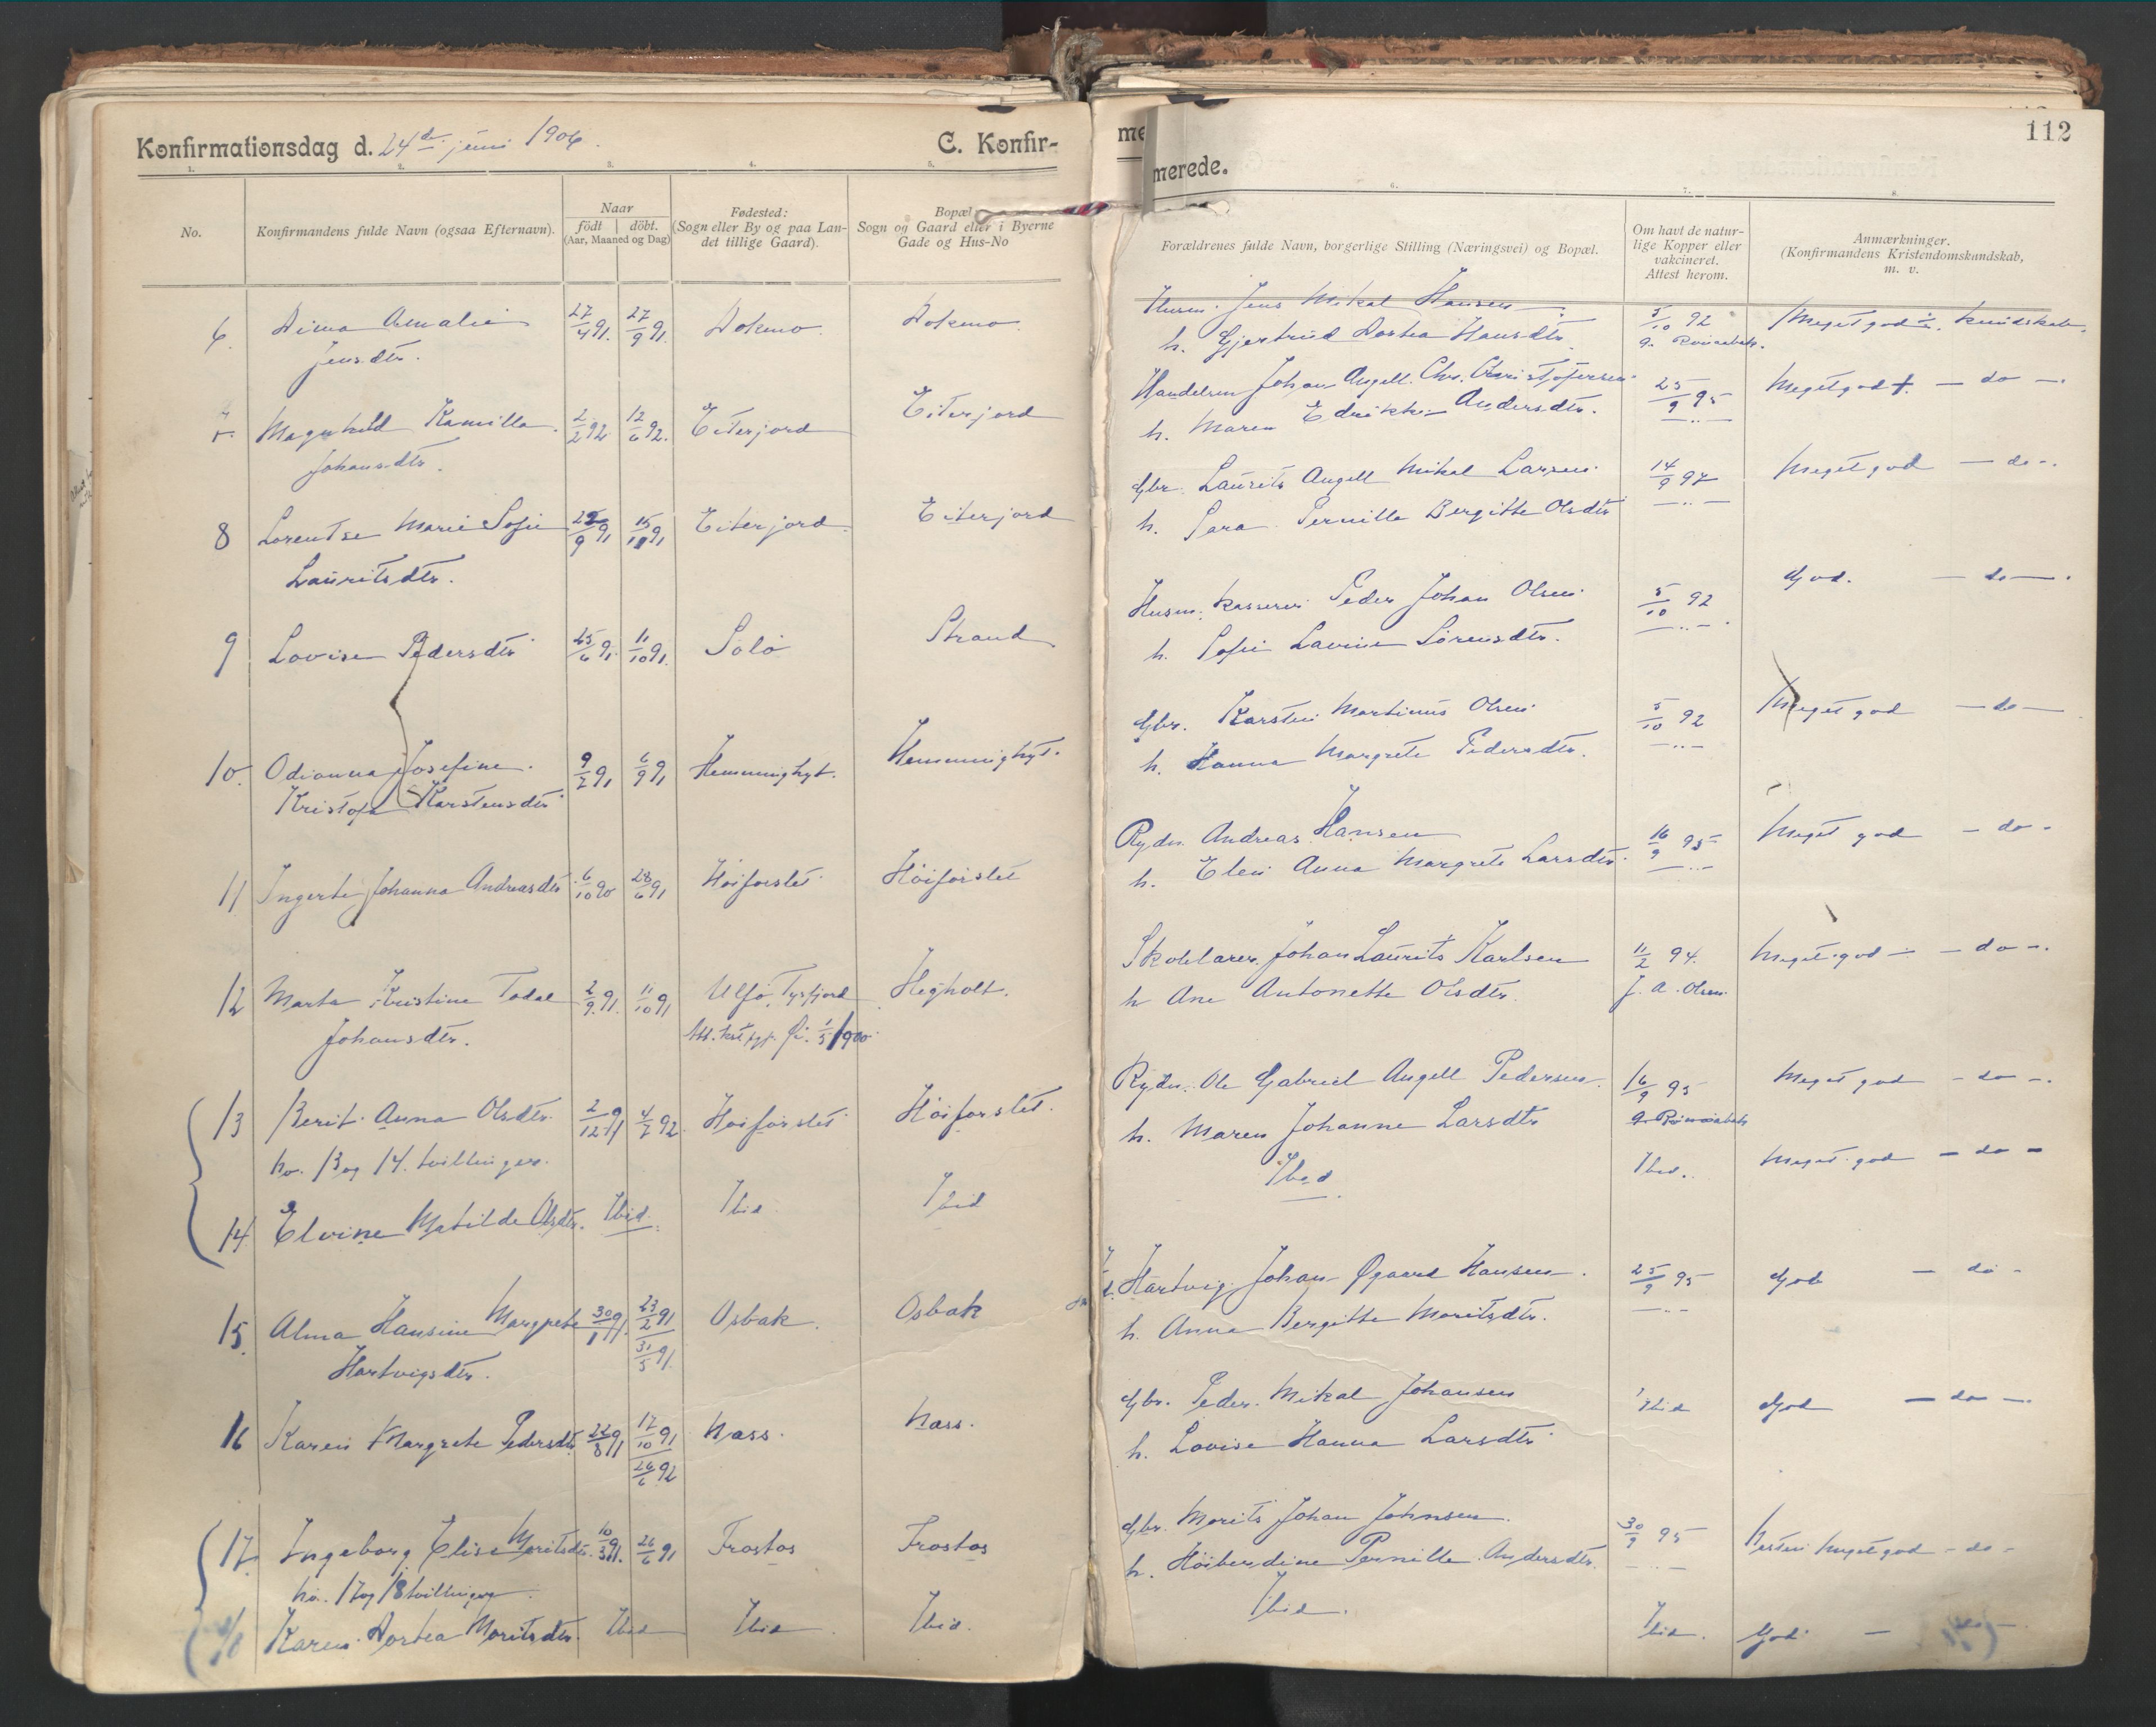 Konfirmationsdag d. 24de juni 1906.
C. Konfir-
1. 2. 3. 4. 5.
No.
Konfirmandens fulde Navn (ogsaa Efternavn).
Naar
födt | döbt.
(Aar, Maaned og Dag)
Fødested:
(Sogn eller By og paa Lan-
det tillige Gaard).
Bopæl
Sogn og Gaard eller i Byerne
Gade og Hus-No
6. Dina Amalie 27/4 91. 27/9 91. Dokmo. Dokmo.
Jensdtr.
7 Magnhild Kamilla. 2/2 92. 12/6 92. Eiterjord Eiterjord
Johansdtr.
8 Lorentse Marie Sofie 25/9 91 15/11 91 Eiterjord. Eiterjord
Lauritsdtr.
9 Lovise Pedersdtr 25/6 91. 11/10 91. Solö Strand
10. Odianna Josefine. 9/7 91 6/9 91 Hemminghyt. Hemminghyt.
Kristofa Karstensdtr
11 Ingerte Johanna Andreasdtr 6/10 90 28/6 91 Höiforslet Höiforslet
12 Marta Kristine Todal 2/9 91. 11/10 91 Ulfö, Tysfjord Hegholt.
Johansdtr. 1/5 1900.
13 Berit Anna Olsdtr. 2/12 91 4/7 92. Hoiforslet Höiforslet.
No. 13 og 14. tvillinger.
14. Elvine Matilde Olsdtr. Ibid. Ibid Ibid
15. Alma Hansine Margrete 30/1 91. 23/2 91 Osbak. Osbak
31/5 91.
Hartvigsdtr.
16 Karen Margrete Pedersdtr. 22/8 91 17/10 91 Næss. Næss.
26/6 92
17. Ingeborg Elise Moritsdtr. 10/3 91. 26/6 91 Trostos Trostos
No. 17 og 18 tvillinger
18 Karen Dortea Moritsdtr. Ibid Ibid. Ibid.
me
merede.
112
6. 7. 8.
Forældrenes fulde Navn, borgerlige Stilling (Næringsvei) og Bopæl.
Om havt de natur-
lige Kopper eller
vakcineret.
Attest herom.
Anmærkninger.
(Konfirmandens Kristendomskundskab,
m. v.
Husm. Jens Mikal Hansen 5/10 92 Meget god kundskab.
h. Gjertrud Dortea Hansdtr.
Handelsm Johan Angell Chr. Christofersen 25/9 95 Meget god +. — do —.
h. Maren Edrikke Andersdtr. — „ —
Gbr. Laurits Angell Mikal Larsen. 14/9 97 Meget god — do —.
h. Sara Pernille Bergitte Olsdtr — „ —
Husm. kasserer Peder Johan Olsen 5/10 92 God. — do —.
h. Sofie Lavine Sörensdtr. — „ —.
Gbr. Karsten Martinus Olsen 5/10 92 Meget god — do —
h. Hanna Margrete Pedersdtr. — „ —
Rydn. Andreas Hansen 16/9 95 Meget god — do -
h. Elen Anna Margrete Larsdtr. — „ —
Skolelærer Johan Laurits Karlsen 11/2 94. Meget god — — do —.
h Ane Antonette Olsdtr. J. A. Olsen
Rydn. Ole Gabriel Angell Pedersen. 16/9 95 Meget god — do —.
h. Maren Johanne Larsdtr
Ibid. Ibid. Meget god — do —
Hartvig Johan Ögaard Hansen. 25/9 95 God — do -
h. Anna Bergitte Moritsdtr. — „ —
Gbr. Peder Mikal Johansen Ibid God — do —.
h. Lovise Hanna Larsdtr
Gbr. Morits Johan Johnsen. 30/9 95 Næsten meget god - do -
h. Höiberdine Pernille Andersdtr. — „ —
Ibid. Ibid. God —